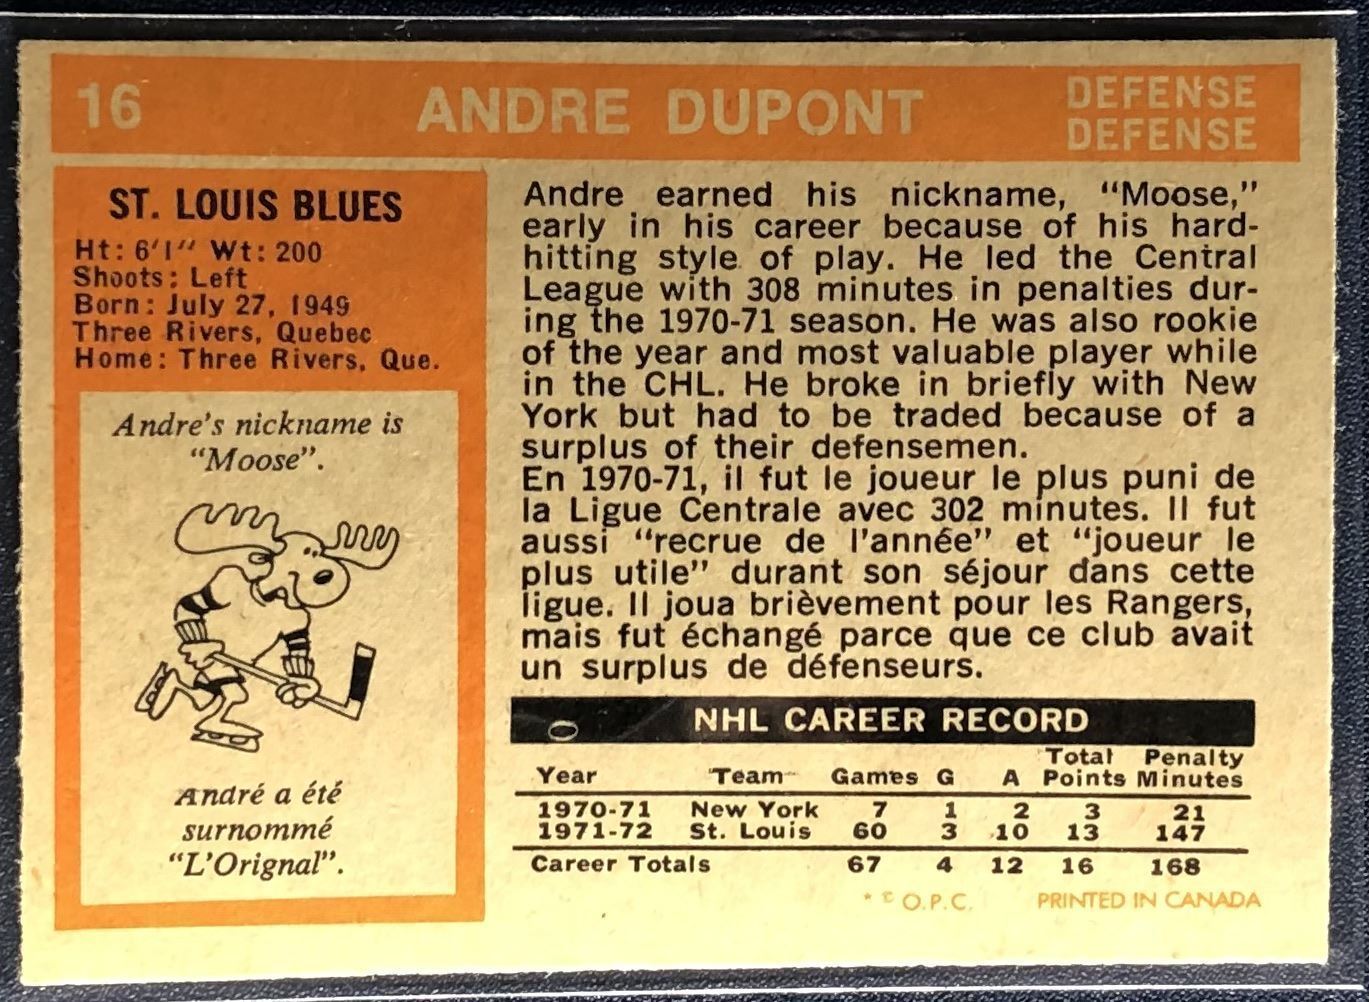 16
ANDRE DUPONT
DEFENSE
DEFENSE
ST. LOUIS BLUES
Ht: 6'1" Wt: 200
Shoots: Left
Born: July 27, 1949
Three Rivers, Quebec
Home: Three Rivers, Que.
Andre's nickname is
"Moose".
André a été
surnommé
"L'Orignal".
Andre earned his nickname, "Moose,"
early in his career because of his hard-
hitting style of play. He led the Central
League with 308 minutes in penalties dur-
ing the 1970-71 season. He was also rookie
of the year and most valuable player while
in the CHL. He broke in briefly with New
York but had to be traded because of a
surplus of their defensemen.
En 1970-71, il fut le joueur le plus puni de
la Ligue Centrale avec 302 minutes. Il fut
aussi "recrue de l'année" et "joueur le
plus utile" durant son séjour dans cette
ligue. Il joua brièvement pour les Rangers,
mais fut échangé parce que ce club avait
un surplus de défenseurs.
NHL CAREER RECORD
Year Team Games G A Total Points Penalty Minutes
1970-71 New York 7 1 2 3 21
1971-72 St. Louis 60 3 10 13 147
Career Totals 67 4 12 16 168
* © O.P.C. PRINTED IN CANADA